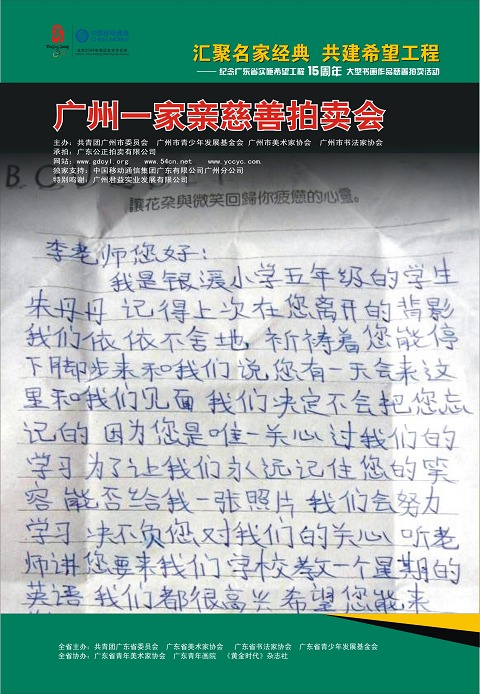 中国移动通信
汇聚名家经典 共建希望工程
——纪念广东省实施希望工程15周年 大型书画作品慈善拍卖活动
广州一家亲慈善拍卖会
主办：共青团广州市委员会 广州市青少年发展基金会 广州市美术家协会 广州市书法家协会
承拍：广东公正拍卖有限公司
网站：www.gdcyl.org www.54cn.net www.yccyc.com
独家支持：中国移动通信集团广东有限公司广州分公司
特别鸣谢：广州君益实业发展有限公司
B C
讓花朶與微笑回歸你疲憊的心靈。
李老师您好：
我是银湲小学五年级的学生
朱丹丹 记得上次在您离开的背影
我们依依不舍地，祈祷着您能停
下脚步来和我们说，您有一天会来这
里和我们见面 我们决定不会把您忘
记的 因为您是唯一关心过我们的
学习 为了让我们永远记住您的笑
容 能否给我一张照片 我们会努力
学习 决不负您对我们的关心 听老
师讲您要来我们学校教一个星期的
英语 我们都很高兴 希望您能来
全省主办：共青团广东省委员会 广东省美术家协会 广东省书法家协会 广东省青少年发展基金会
全省协办：广东省青年美术家协会 广东青年画院 《黄金时代》杂志社